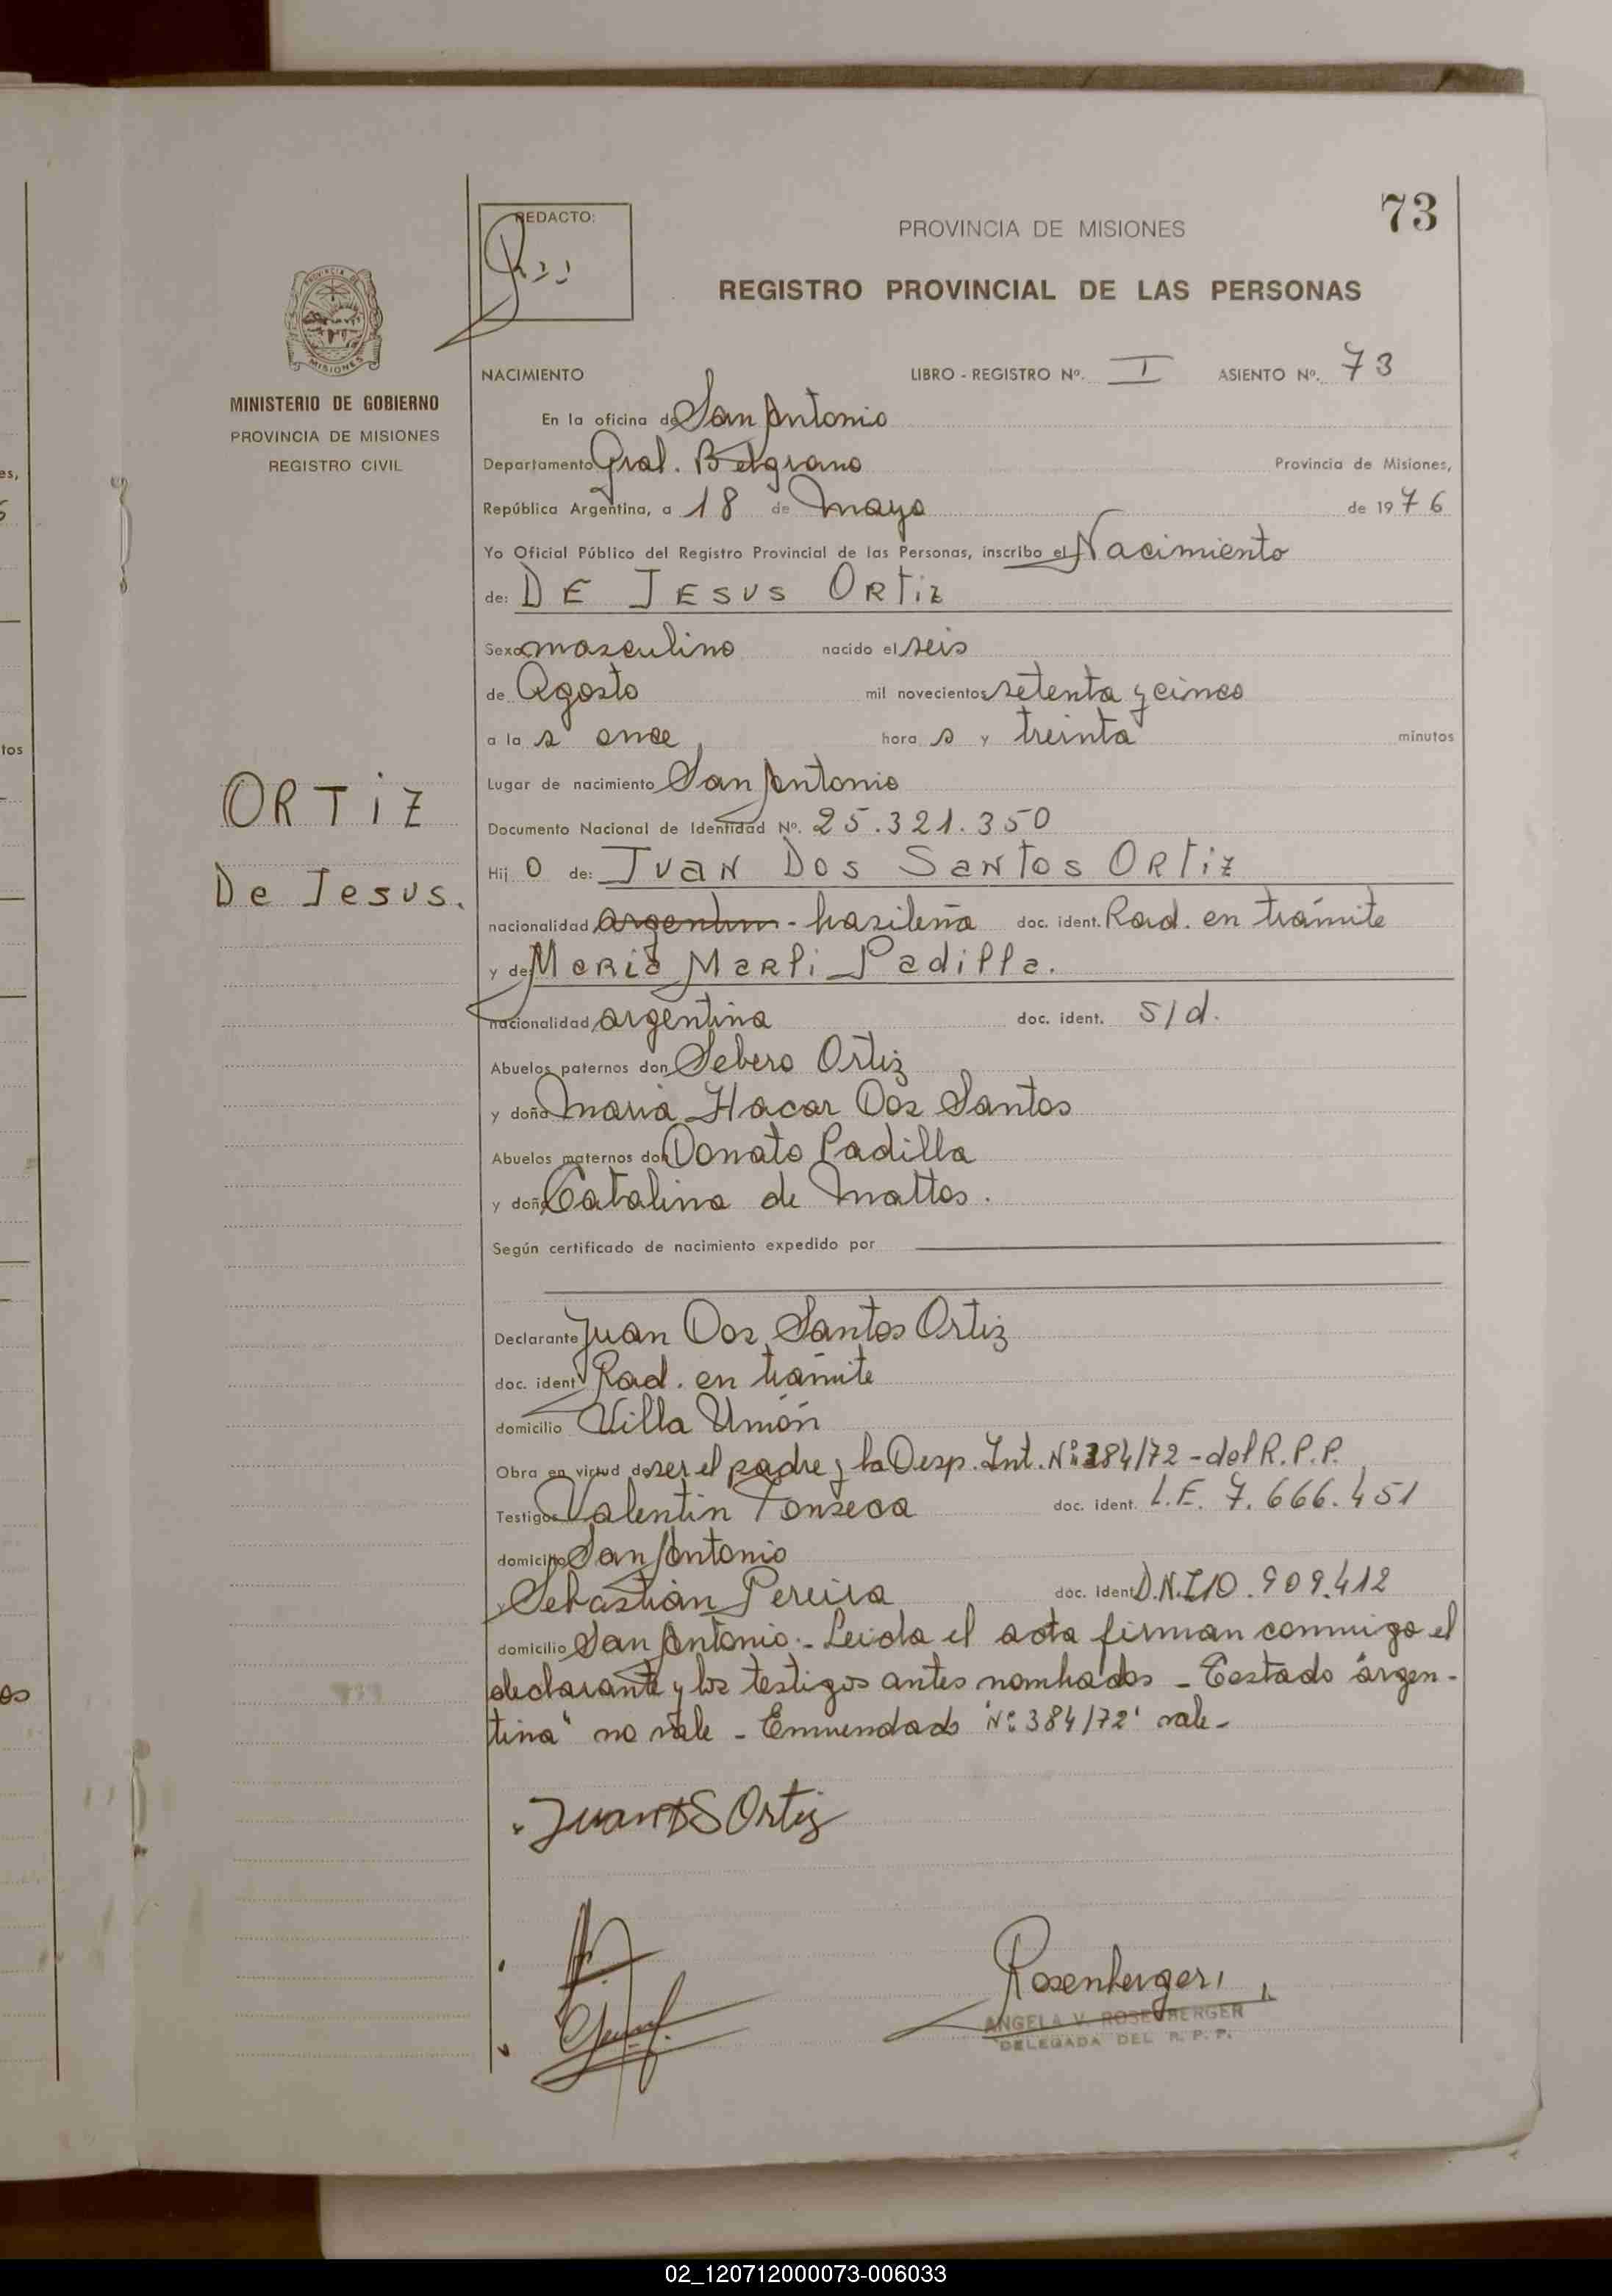 REDACTO:
PROVINCIA DE MISIONES
73
REGISTRO PROVINCIAL DE LAS PERSONAS
PROVINCIA DE
MISIONES
MINISTERIO DE GOBIERNO
PROVINCIA DE MISIONES
REGISTRO CIVIL
NACIMIENTO LIBRO - REGISTRO Nº. I ASIENTO Nº. 73
En la oficina de San Antonio
Departamento Gral. Belgrano Provincia de Misiones,
República Argentina, a 18 de Mayo de 1976
Yo Oficial Público del Registro Provincial de las Personas, inscribo el Nacimiento
de: DE JESUS ORTiZ
Sexo masculino nacido el seis
de Agosto mil novecientos setenta y cinco
a la s once hora s y treinta minutos
Lugar de nacimiento San Antonio
Documento Nacional de Identidad Nº. 25.321.350
Hij o de: JUAN DOS SANTOS ORTiZ
nacionalidad argentin - brasileña doc. ident. Rad. en trámite
y de Maria Marli Padilla.
nacionalidad argentina doc. ident. s/d.
Abuelos paternos don Sebero Ortiz
y doña Maria Hacar Dos Santos
Abuelos maternos don Donato Padilla
y doña Catalina de Mattos.
Según certificado de nacimiento expedido por
Declarante Juan Dos Santos Ortiz
doc. ident Rad. en trámite
domicilio Villa Unión
Obra en virtud de ser el padre y la Desp. Int. Nº 384/72 - del R.P.P.
Testigos Valentin Fonseca doc. ident. L.E. 7.666.451
domicilio San Antonio
y Sebastián Pereira doc. ident D.N.I 10.909.412
domicilio San Antonio.- Leida el acta firman conmigo el
declarante y los testigos antes nombrados - Testado "argen-
tina" no vale - Enmendado "Nº 384/72" vale-
ORTiZ
De Jesus.
Juan D S Ortiz
Rosenberger
ANGELA V. ROSENBERGER
DELEGADA DEL R. P. P.
02_120712000073-006033